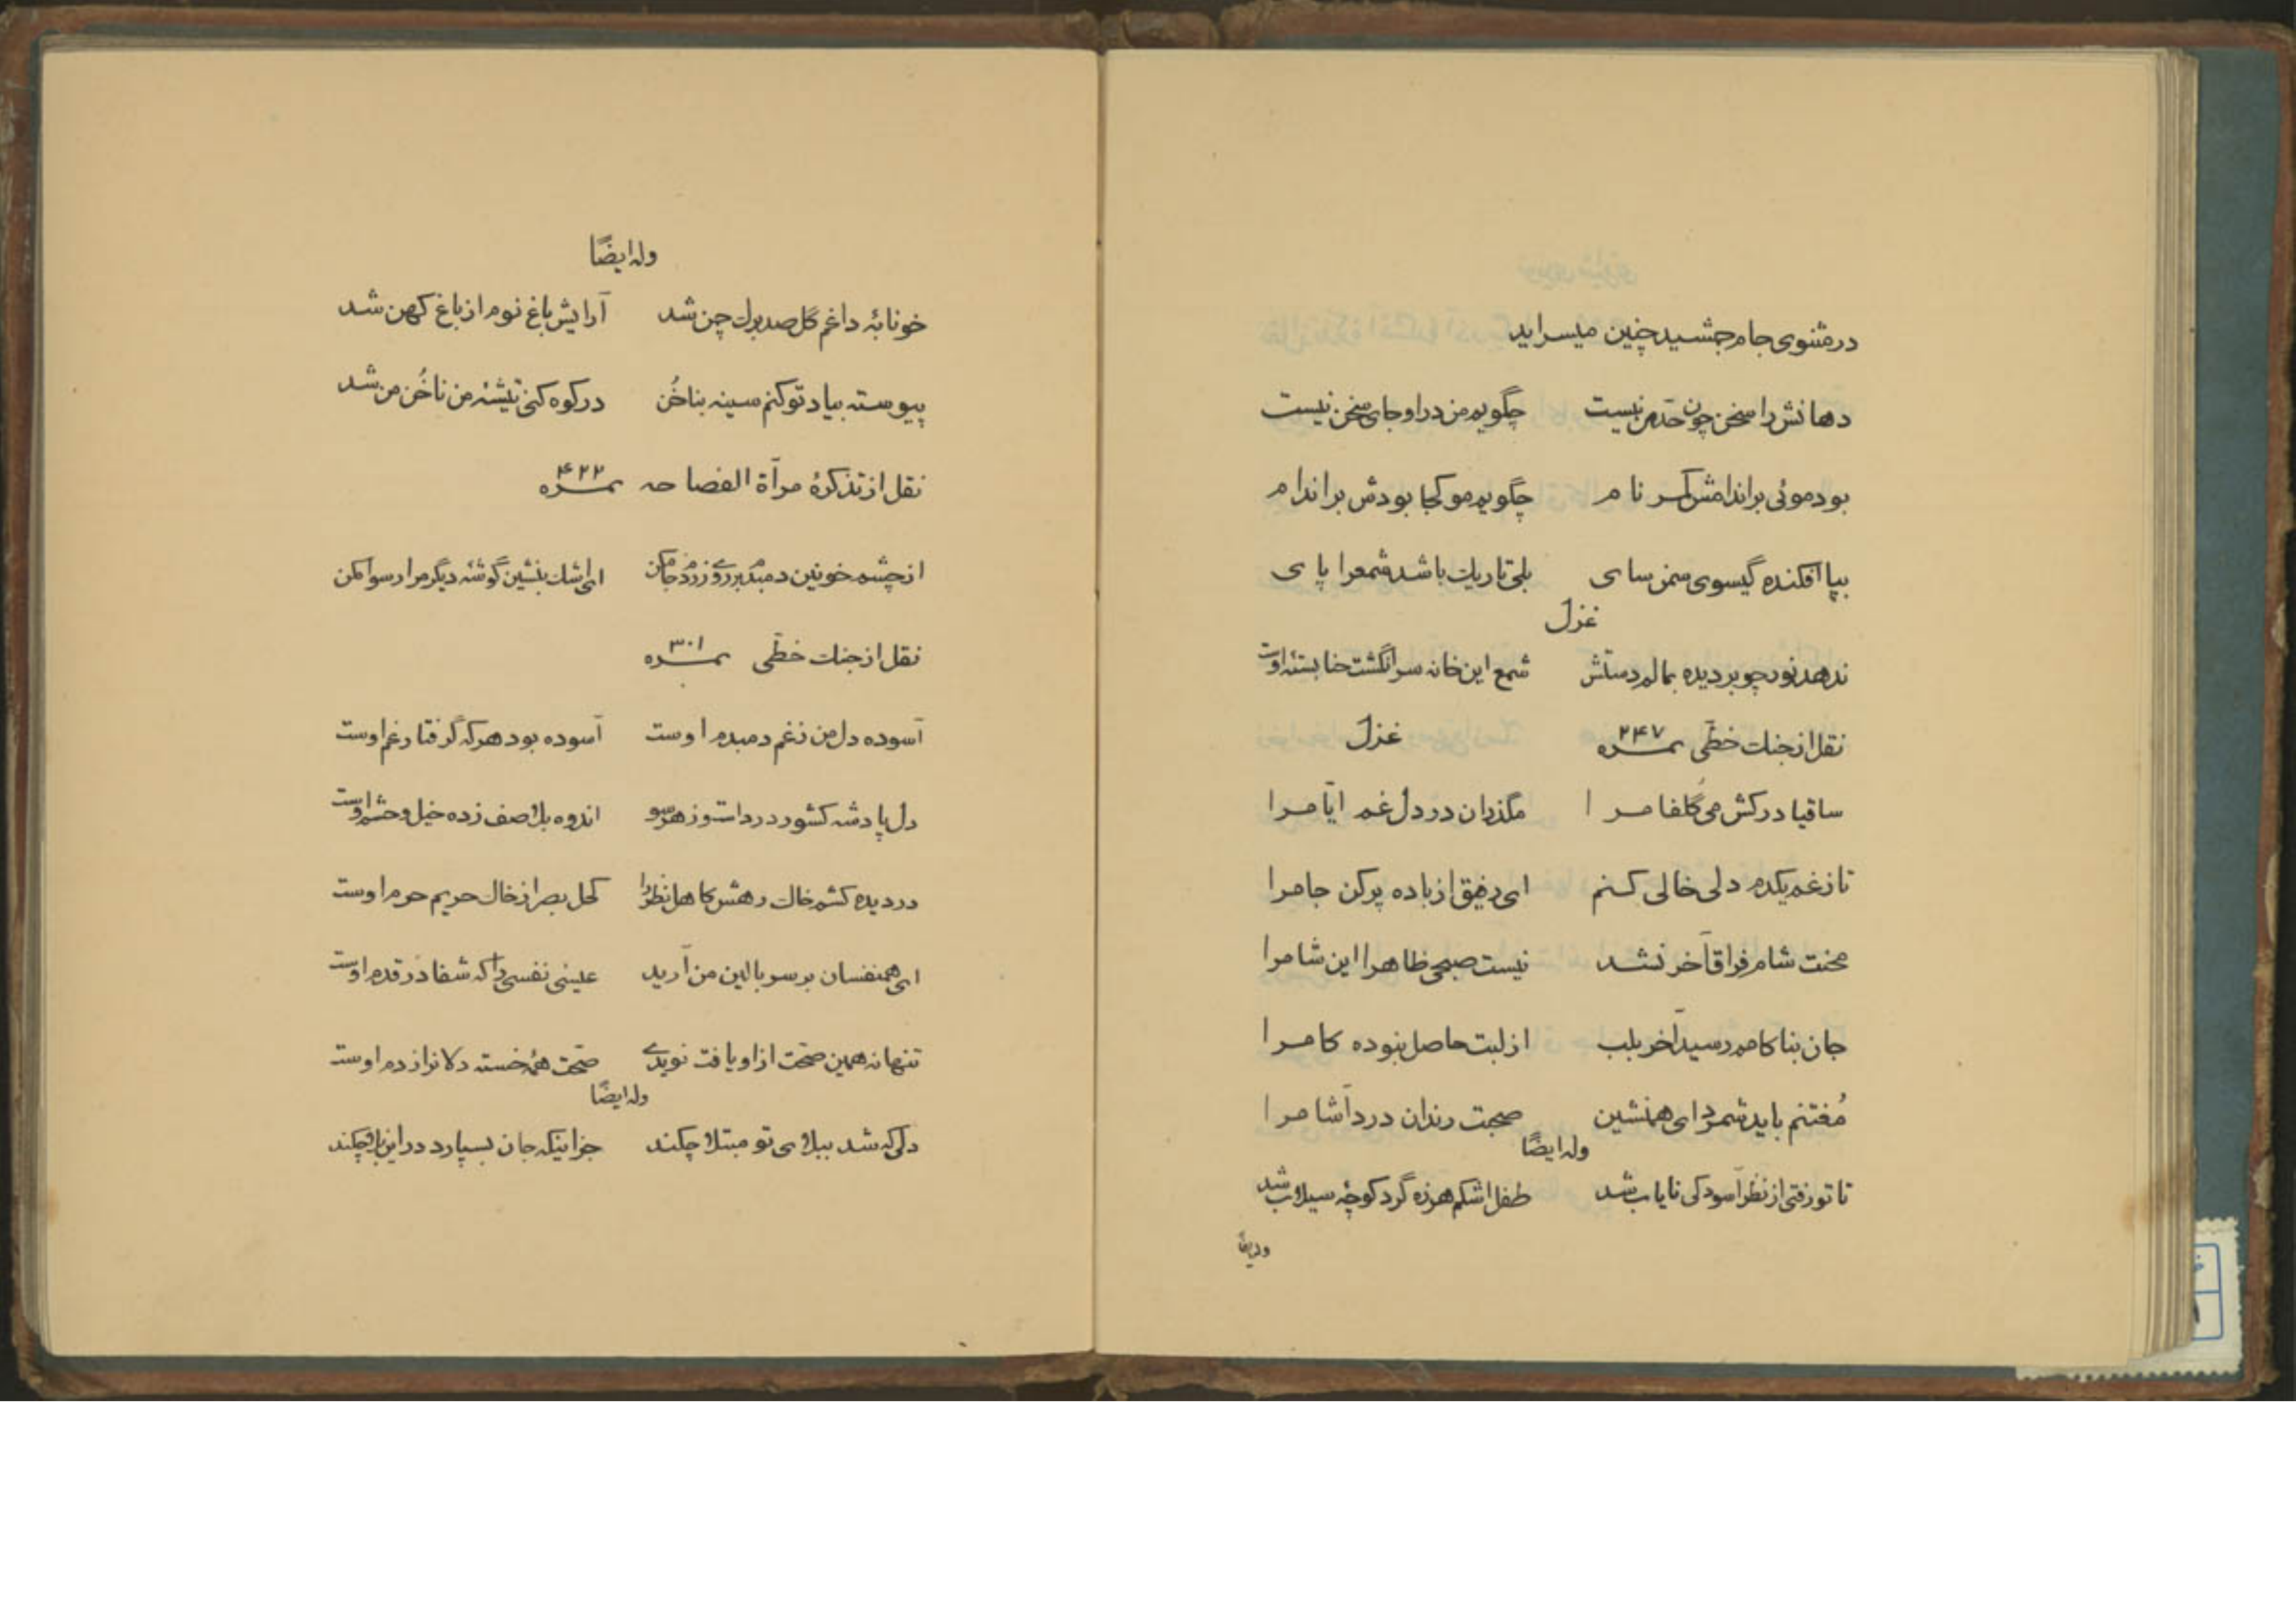 در مثنوی جام جمشید چنین میسراید
دهانش را سخن چون حد من نیست چگویم من در او جای سخن نیست
بود موئی براندامش کمر نام چگویم مو کجا بودش براندام
بپا افکنده گیسوی سمن سای بلی تاریك باشد شمع را پای
غزل
ندهد نور چو بردیده بمالم دستش شمع این خانه سرانگشت حنا بستهٔ اوست
نقل از جنك خطی نمره ۲۴۷ غزل
ساقیا درکش می گلفام را مگذران در دل غم ایّام را
تا ز غم یکدم دلی خالی کنم ای رفیق از باده پر کن جام را
محنت شام فراق آخر نشد نیست صبحی ظاهرا این شام را
جان بناکامم رسید آخر بلب از لبت حاصل نبوده کام را
مُغتنم باید شمرد ای همنشین صحبت رندان دردآشام را
وله ایضًا
تا تو رفتی از نظر آسودکی نایاب شد طفل اشکم هرزه گرد کوچهٔ سیلاب شد
وله ایضًا
وله ایضًا
خونابهٔ داغم گل صد برك چمن شد آرایش باغ نوم از باغ کهن شد
پیوسته بیاد تو کنم سینه بناخُن در کوه کنی تیشهٔ من ناخُن من شد
نقل از تذکرهٔ مرآة الفصاحه نمره ۴۲۲
از چشم خونین دمبدم بر روی زردم جا مکن ای اشك بنشین گوشهٔ دیگر مرا رسوا مکن
نقل از جنك خطّی نمره ۳۰۱
آسوده دل من ز غم دمبدم اوست آسوده بود هرکه گرفتار غم اوست
دل پادشه کشور درد است و ز هر سو اندوه بلا صف زده خیل و حشم اوست
در دیده کشم خاك رهش کاهل نظر را کحل بصر از خاك حریم حرم اوست
ای همنفسان بر سر بالین من آرید عیسی نفسی را که شفا در قدم اوست
تنها نه همین صحّت از او یافت نویدی صحّت همه خسته دلانرا ز دم اوست
وله ایضًا
دلی که شد ببلای تو مبتلا چکند جز اینکه جان بسپارد در این بلا چکند